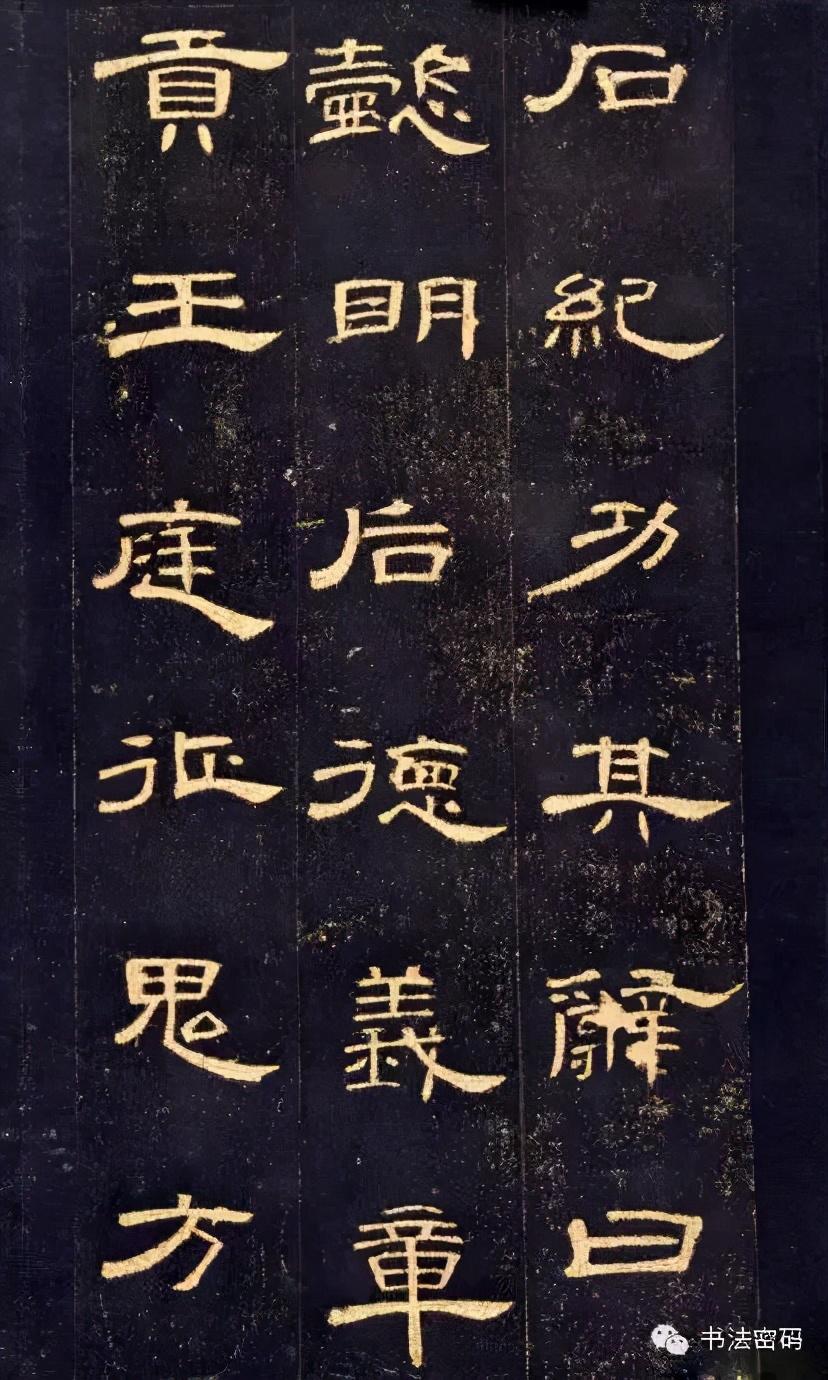 石紀功其辭曰
懿明后德義章
貢王庭征鬼方
书法密码